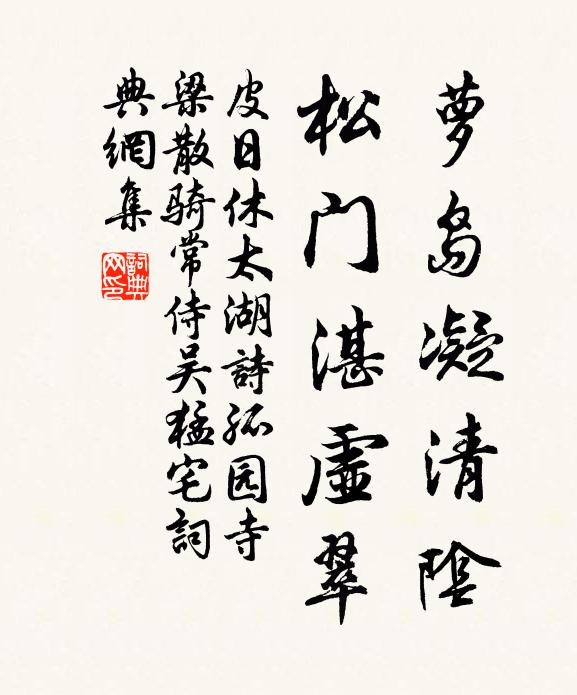 萝岛凝清陰
松门湛虚翠
皮日休太湖詩孤园寺
梁散骑常侍吴猛宅詞
典網集
詞典网印